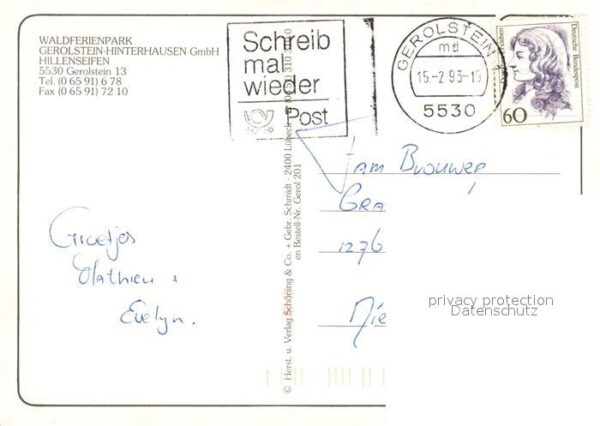 WALDFERIENPARK
GEROLSTEIN-HINTERHAUSEN GmbH
HILLENSEIFEN
5530 Gerolstein 13
Tel. (0 65 91) 6 78
Fax (0 65 91) 72 10
Schreib
mal
wieder
Post
GEROLSTEIN
md
15.-2 93-19
5530
Deutsche Bundespost
60
© Herst. u. Verlag Schöning & Co. + Gebr. Schmidt · 2400 Lübeck
en Bestell-Nr. Gerol 201
Fam Brouwer
GRA
1276
Groetjes
Mathieu +
Evelyn.
privacy protection
Datenschutz